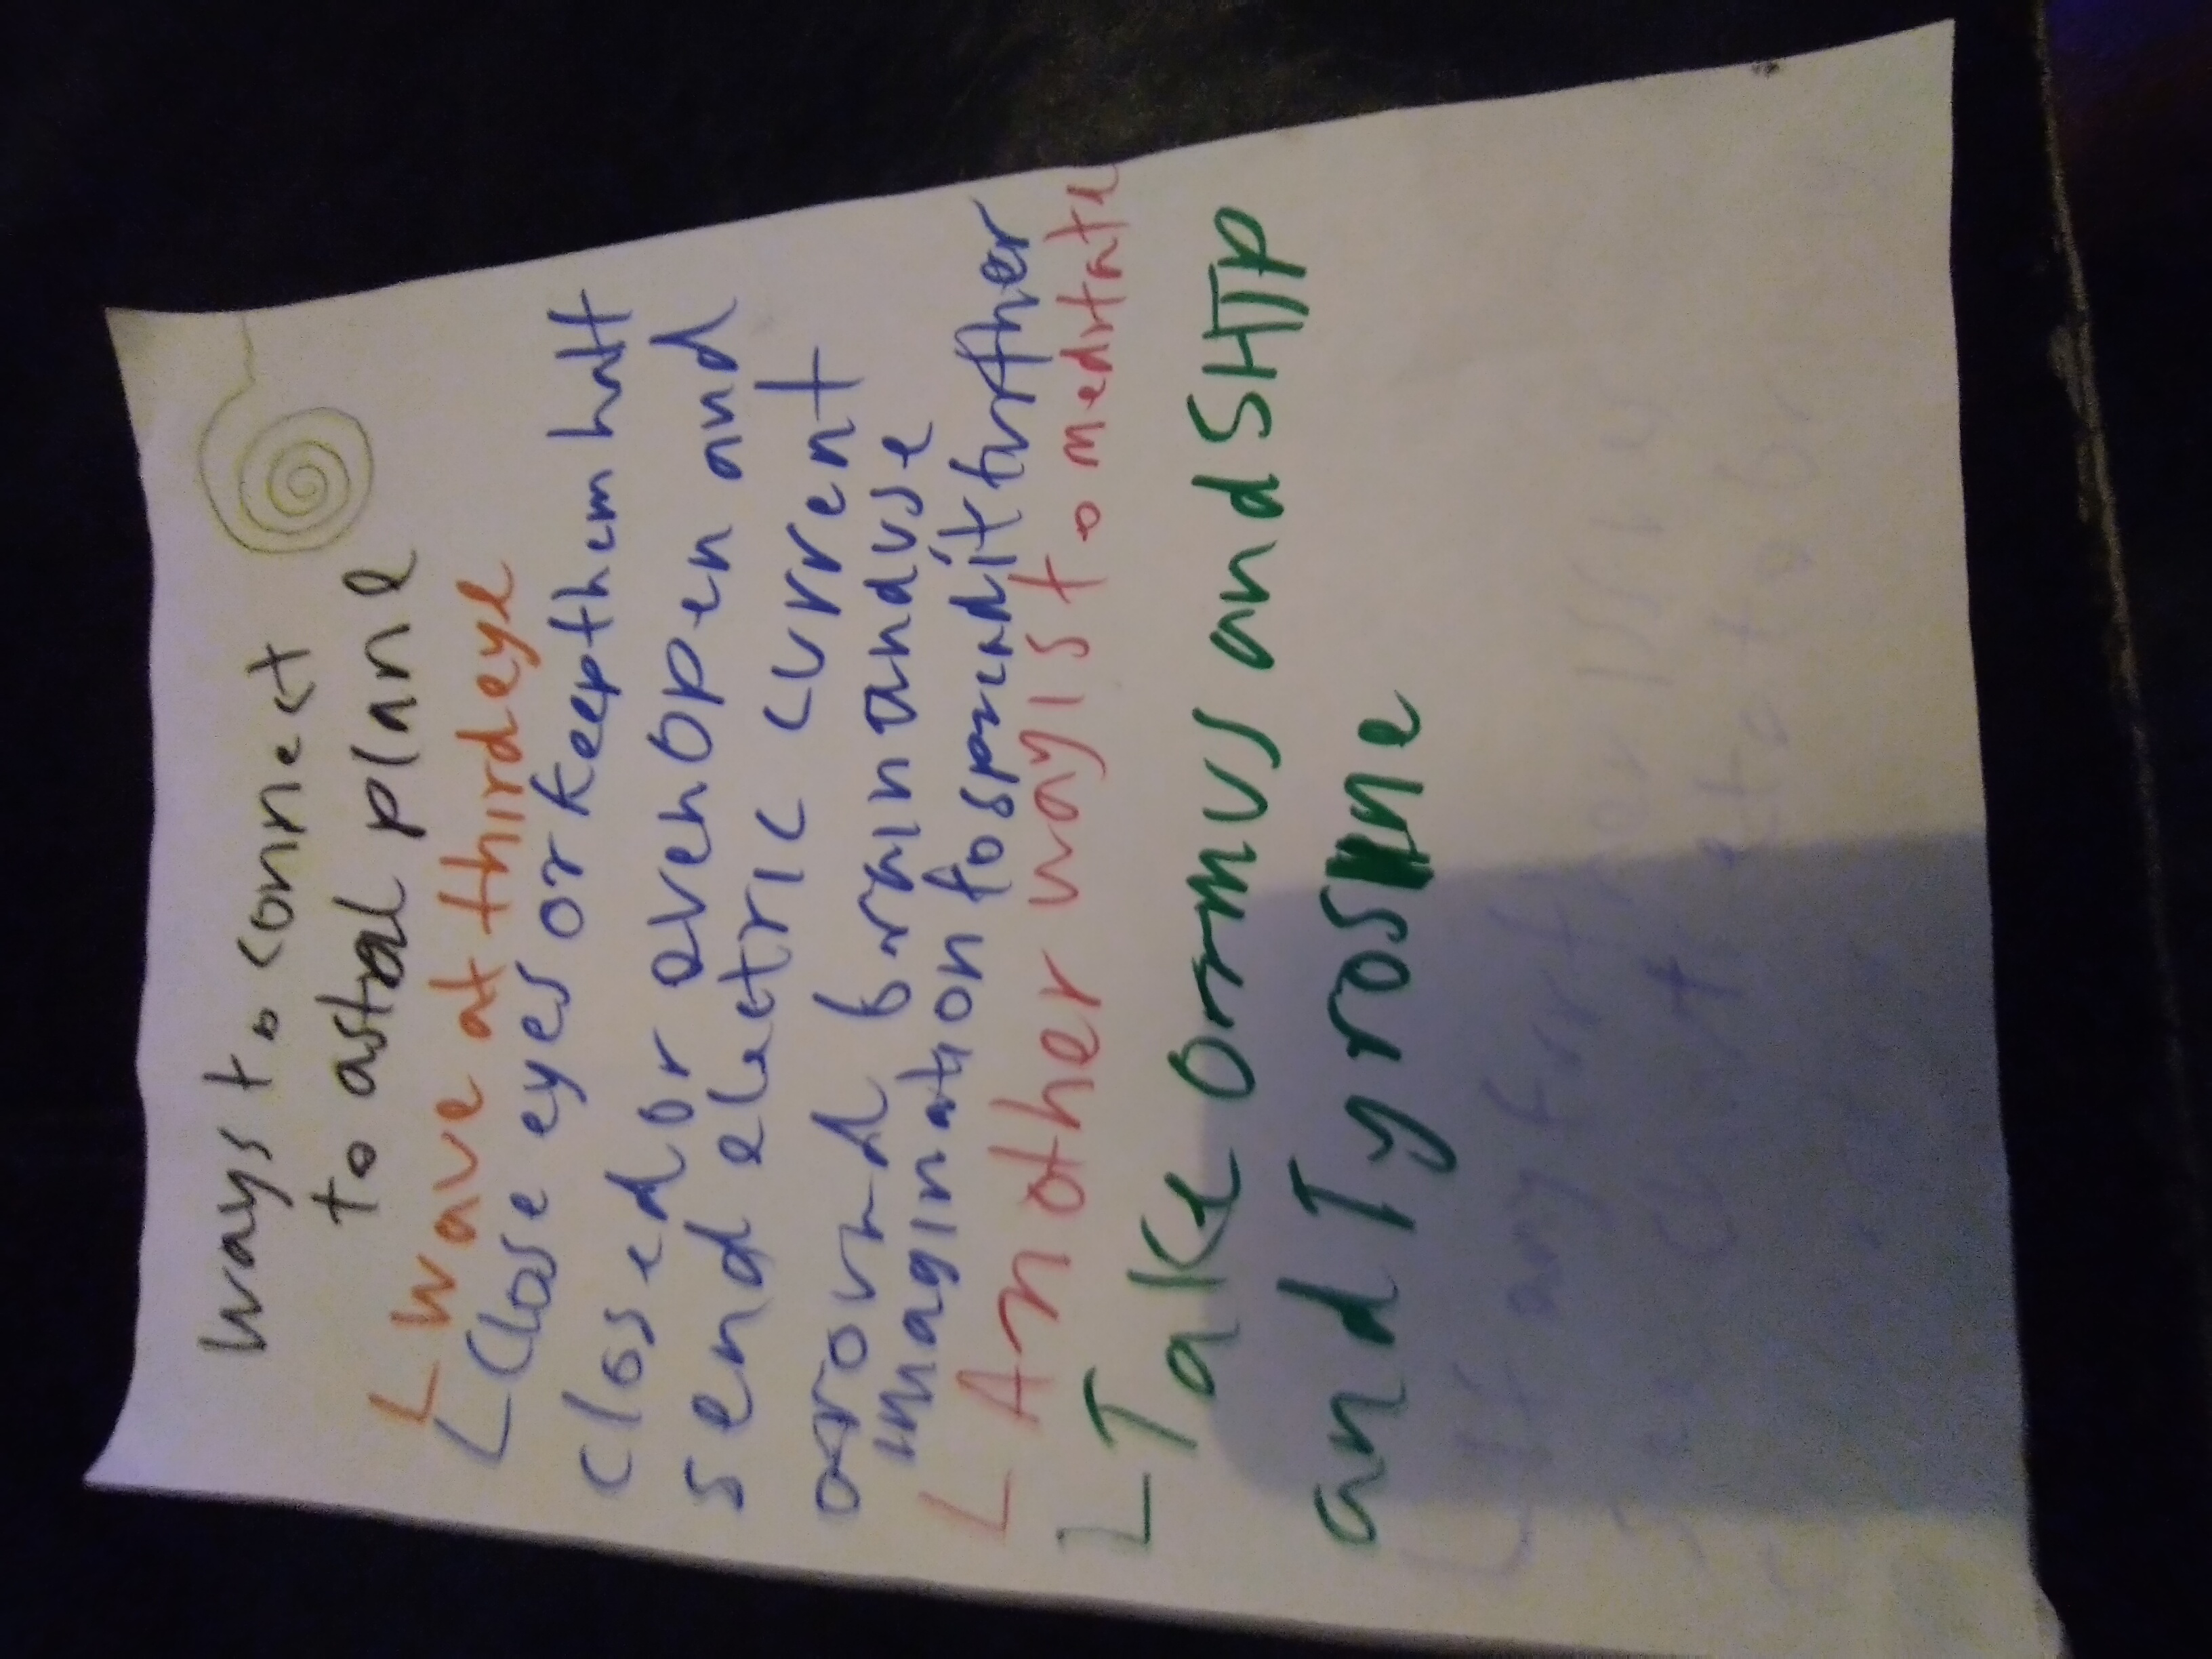 ways to connect
to astral plane
wave at third eye
Close eyes or keep them half
closed or even open and
send electric current
around brain and use
imagination to spread it further
Another way is to meditate
Take and still
and